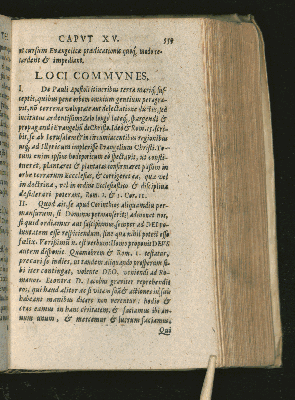 CAPVT XV. 559
ut cursum Evangelicæ prædicationis quoq́; modo re-
tardent & impediant.
LOCI COMMVNES.
I. De Pauli Apostoli itineribus terra mariq́; sus-
ceptis, quibus pene orbem omnium gentium peragra-
vit, nō terrena voluptate aut delectatione ductus, sed
incitatus ardentissimo zelo longè lateq́; spargendi &
propagandi Evangelij de Christo. Ideo & Rom. 15. scri-
bit, se ab Ierusalem & in circumiacentibus regionibus
usq́; ad Illyricum implevisse Evangelium Christi. To-
tum enim ipsius eò spectavit, ut consti-
tueret, plantaret & plantatas confirmaret passim in
orbe terrarum Ecclesias, & corrigeret ea, quæ vel
in doctrina, vel in ordine Ecclesiastico & disciplina
desiderari poterant, Rom. 2. & 1. Cor. 11.
II. Quod ait, se apud Corinthios aliquamdiu per-
mansurum, si Dominus permiserit: admonet nos,
si quid ordinamus aut suscipimus, semper ad DEVM
quoq́; rem esse rejiciendam, sine quo nihil potest esse
felix. Tritissimū n. est verbum: Homo proponit DEVS
autem disponit. Quamobrem & Rom. 1. testatur,
precari se indies, ut tandem aliquando prosperum si-
bi iter contingat, volente DEO, veniendi ad Ro-
manos. Econtra D. Iacobus graviter reprehendit
eos, qui haud aliter ac si vitam suā & actiones in suis
habeant manibus dicere non verentur: hodie &
cras eamus in hanc civitatem, & faciamus ibi an-
num unum, & mercemur & lucrum faciamus,
Qui